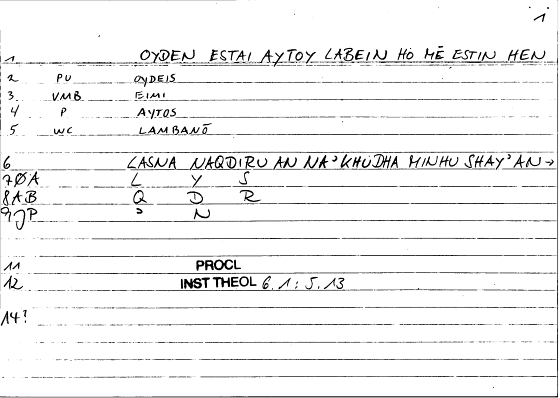 1
1 OYDEN ESTAI AYTOY LABEIN HO MĒ ESTIN HEN
2 PU OYDEIS
3. VMB EIMI
4 P AYTOS
5 WC LAMBANŌ
6 LASNA NAQDIRU AN NA'KHUDHA MINHU SHAY'AN →
7ØA L Y S
8AB Q D R
9JP ' N
11 PROCL
12 INST THEOL 6.1:5.13
14?